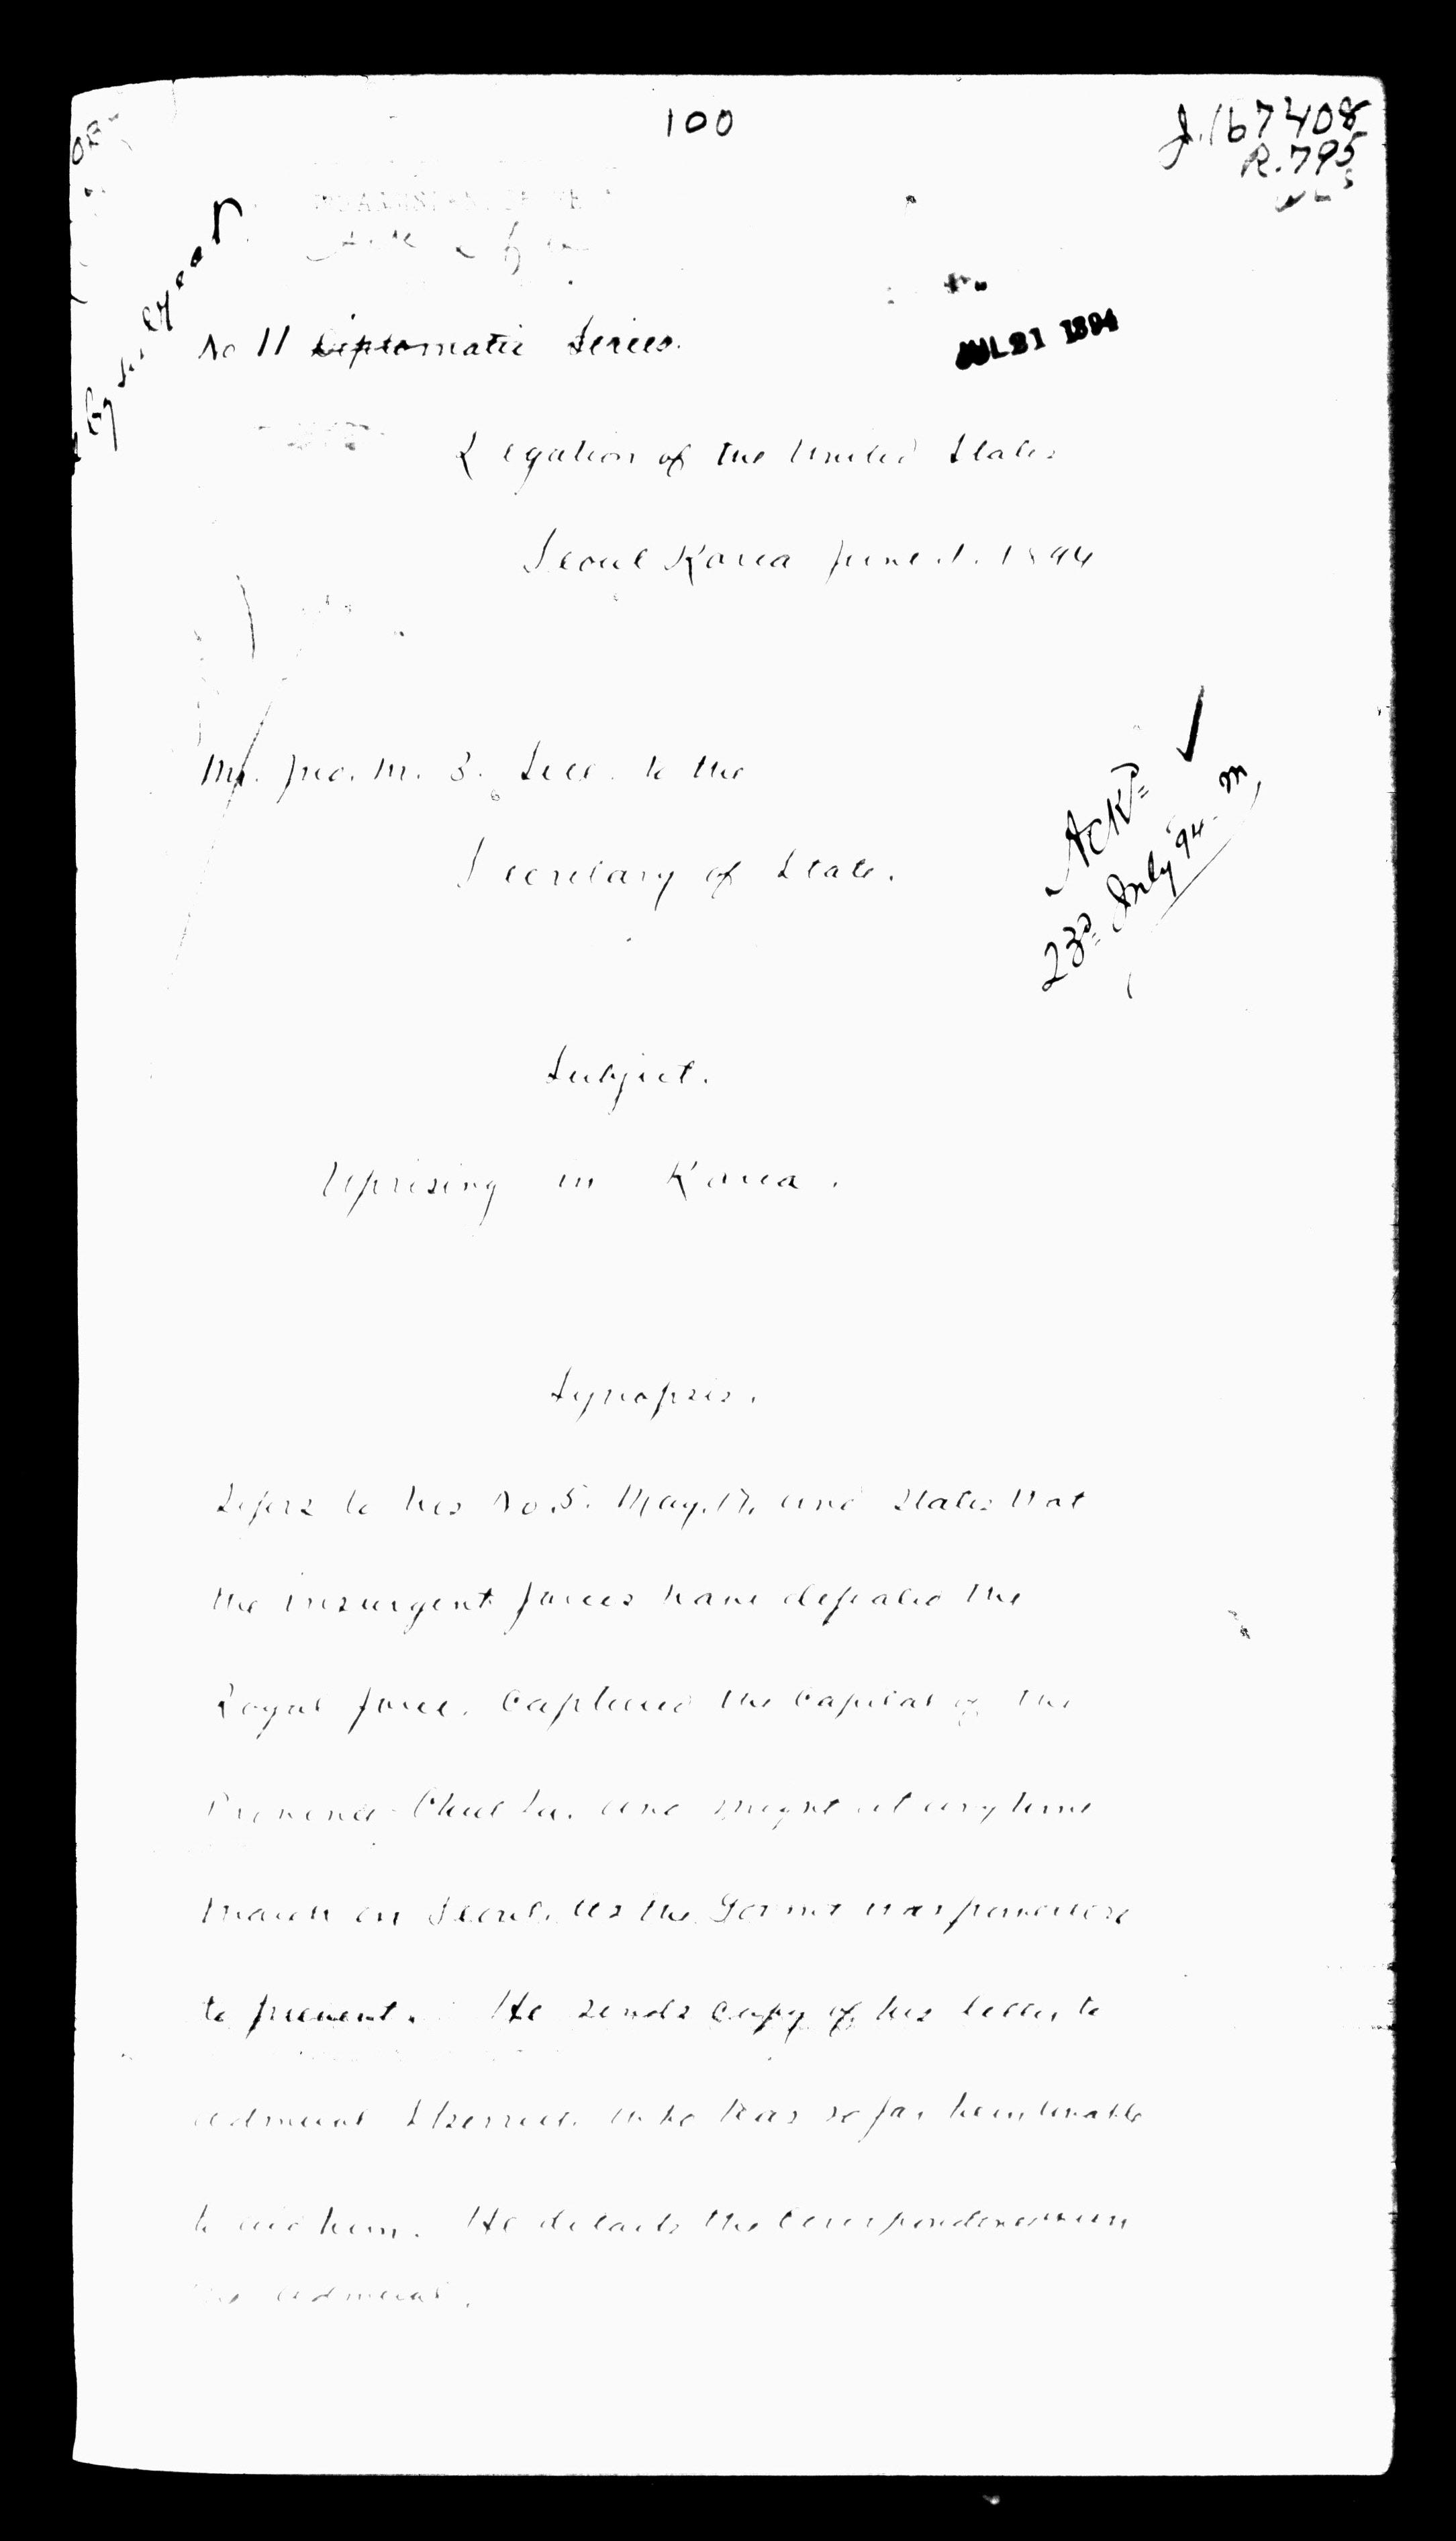 100
J.167408
R.795
No 11 Diplomatic Series.
JUL 21 1894
Legation of the United States
Seoul Korea June 1. 1894
Mr. Jno. M. B. Sill. to the
Secretary of State.
Ack'd
23d July '94
Subject.
Uprising in Korea.
Synopsis.
Refers to his No.5. May.17. and states that
the insurgent forces have defeated the
Royal force. Captured the Capital of the
Province Chulla. and might at any time
march on Seoul. as the Govmt was powerless
to prevent. He sends copy of his letter to
Admiral Skerrett. who has so far been unable
to aid him. He details the correspondence
the Admiral.